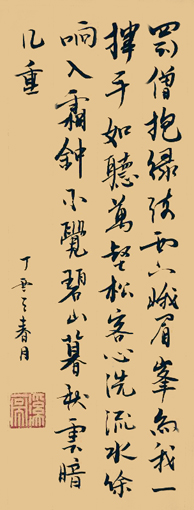 蜀僧抱绿绮西下峨眉峯为我一
揮手如聽萬壑松客心洗流水餘
响入霜钟不覺碧山暮秋雲暗
几重
丁亥之春月